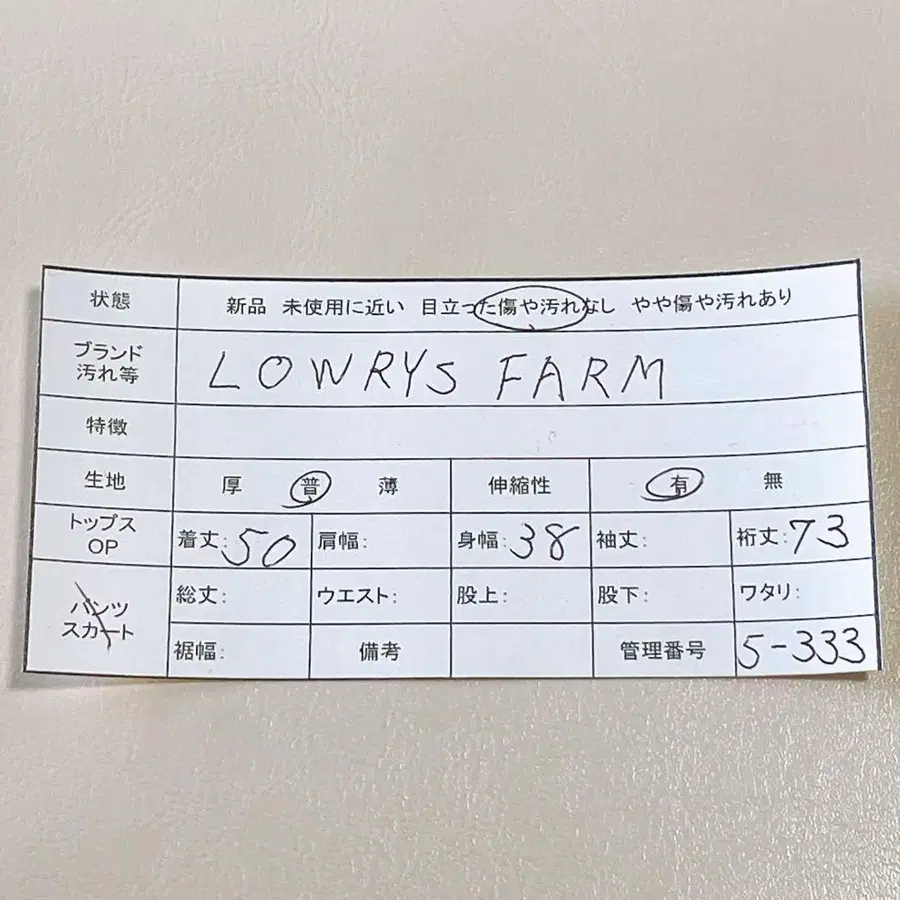 状態 新品 未使用に近い 目立った傷や汚れなし やや傷や汚れあり
ブランド
汚れ等 LOWRYS FARM
特徴
生地 厚 普 薄 伸縮性 有 無
トップス
OP 着丈:50 肩幅: 身幅:38 袖丈: 裄丈:73
パンツ
スカート 総丈: ウエスト: 股上: 股下: ワタリ:
裾幅: 備考 管理番号 5-333